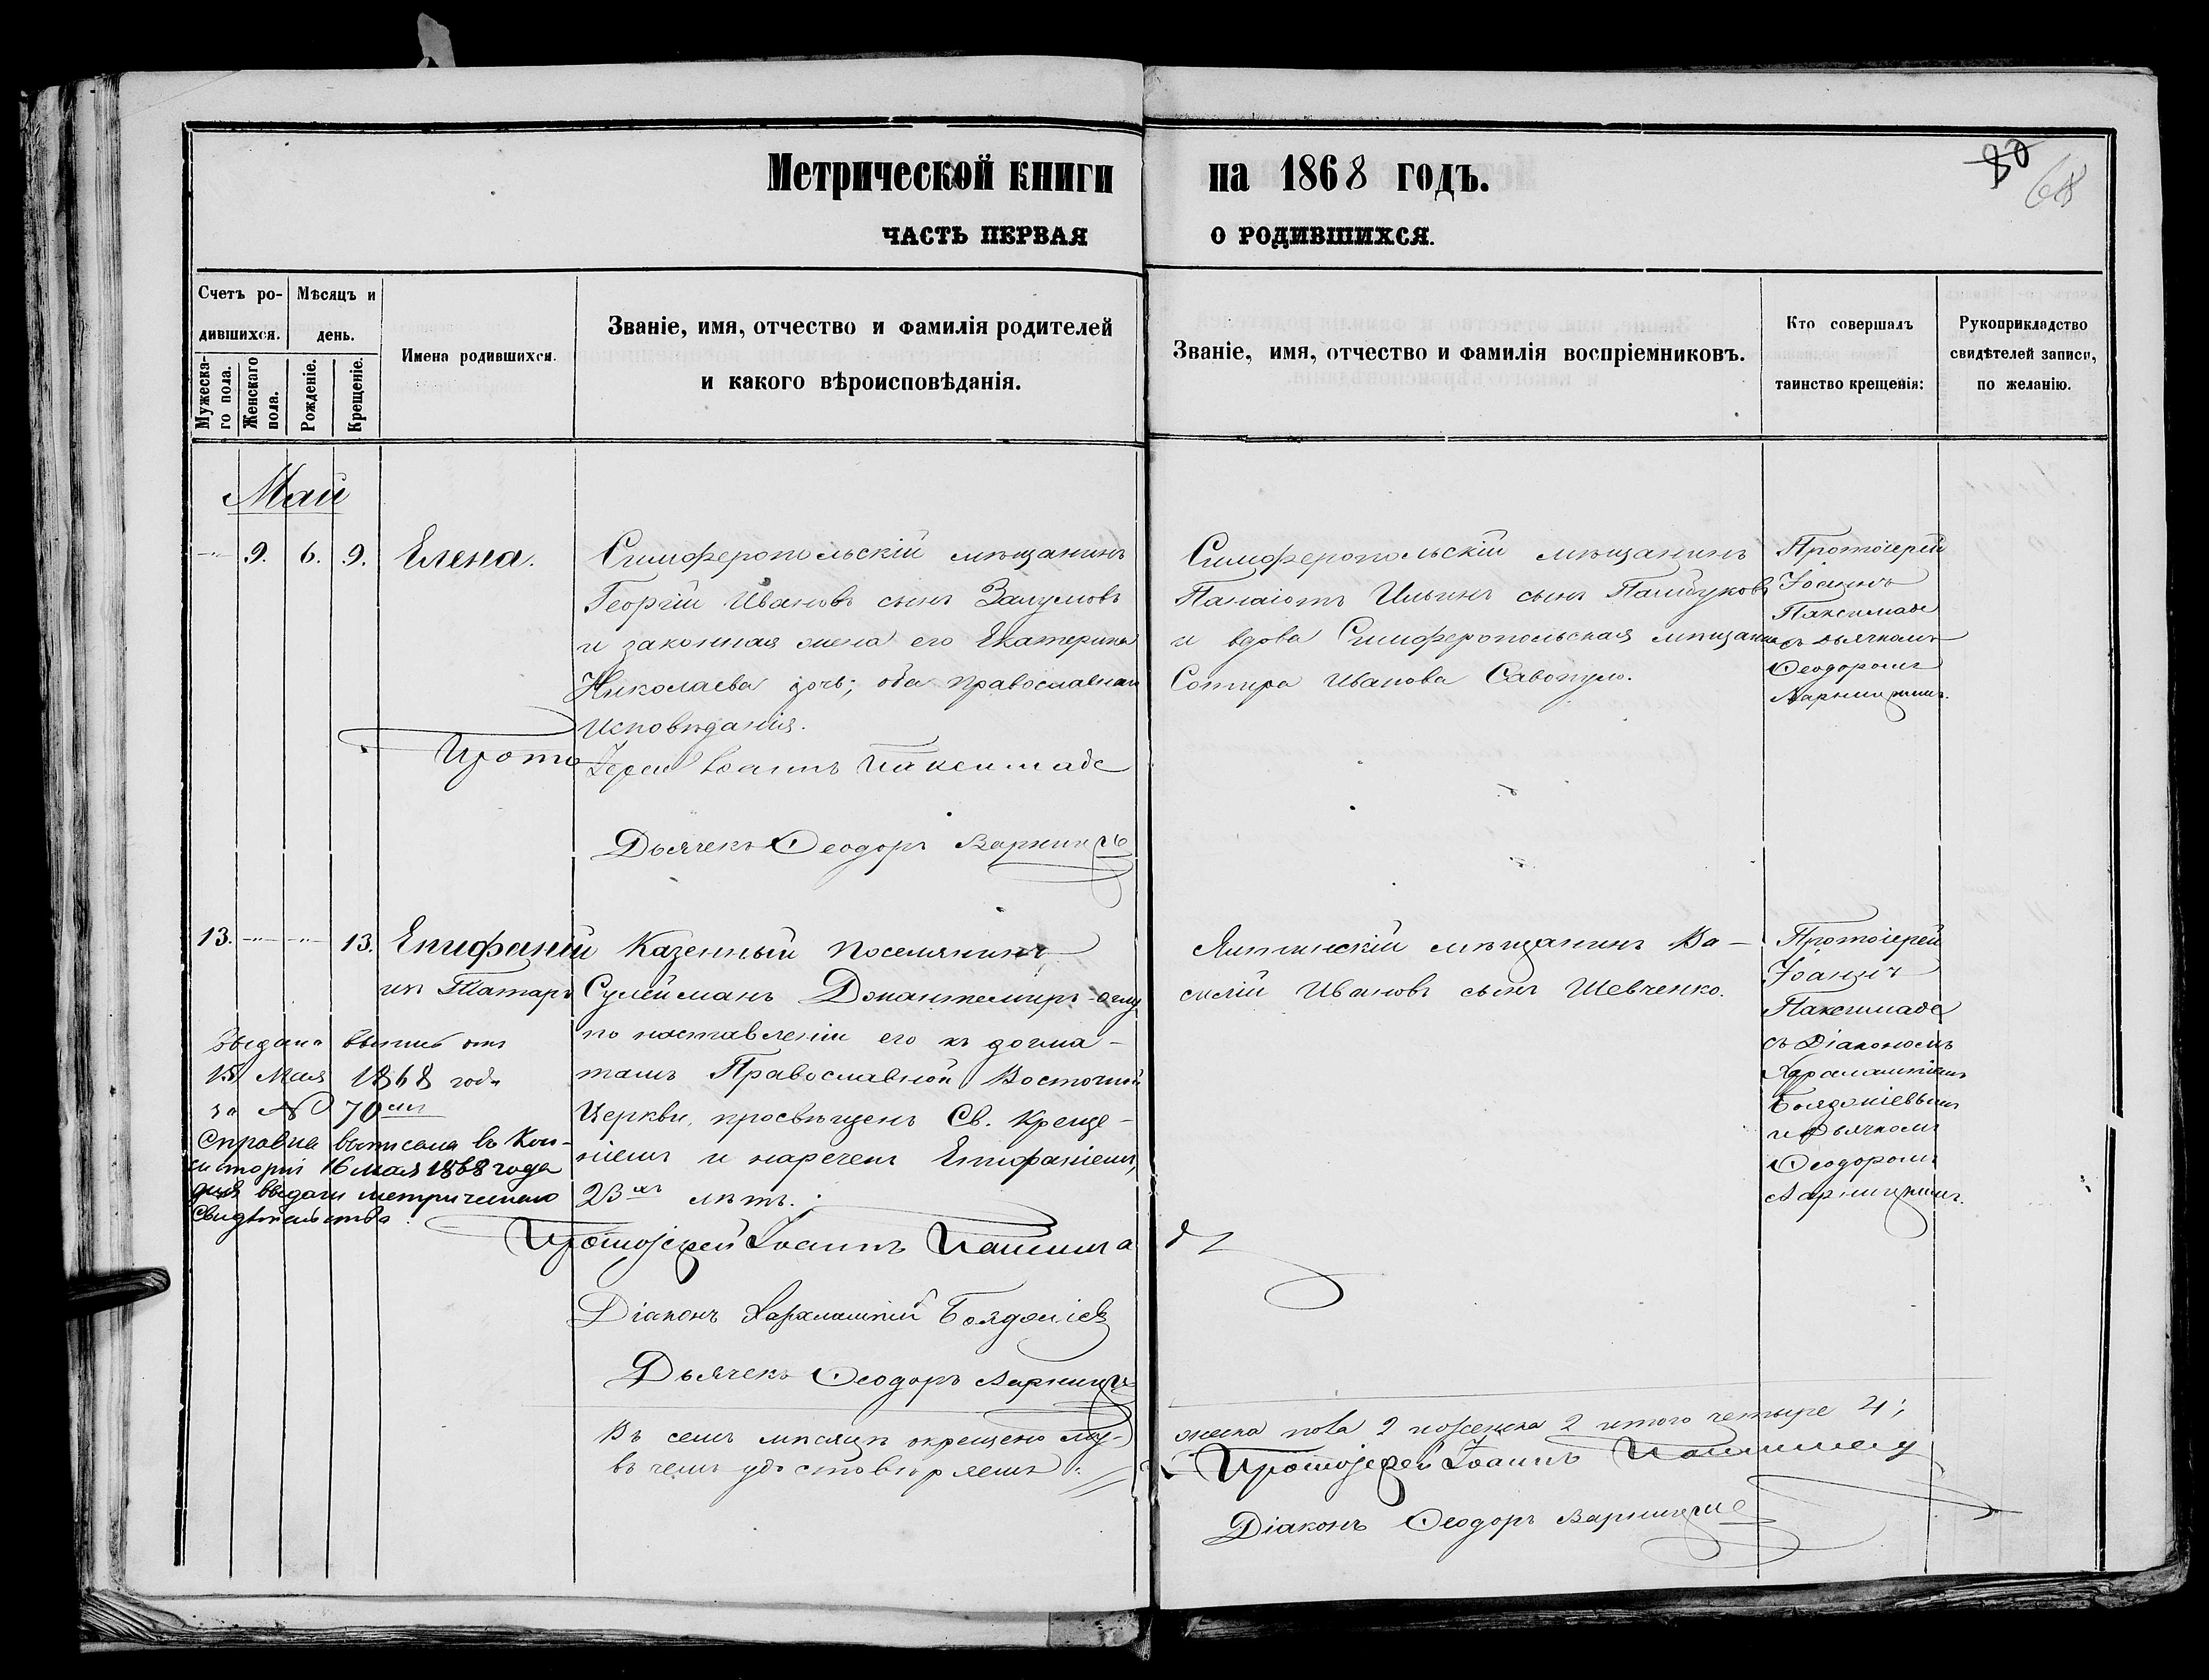 Метрической книги
на 1868 годъ.
80
68
ЧАСТЬ ПЕРВАЯ
О РОДИВШИХСЯ.
Счетъ ро-
дившихся.
Мужеска-
го пола.
Женскаго
пола.
Мѣсяцъ и
день.
Рожденіе.
Крещеніе.
Имена родившихся.
Званіе, имя, отчество и фамилія родителей
и какого вѣроисповѣданія.
Званіе, имя, отчество и фамилія воспріемниковъ.
Кто совершалъ
таинство крещенія:
Рукоприкладство
свидѣтелей записи,
по желанію.
Май
9. 6. 9. Елена.
Симферопольскій мѣщанинъ
Георгій Ивановъ сынъ Залумовъ
и законная жена его Екатерина
Николаева дочь; оба православнаго
Исповѣданія.
Симферопольскій мѣщанинъ
Панаіотъ Ильинъ сынъ
и вдова Симферопольская мѣщанка
Сотира Иванова Савопуло.
Протоіерей
Іоаннъ
Паксимаде
съ дьячкомъ
Ѳеодоромъ
Протоіерей Іоаннъ Паксимаде
Дьячекъ Ѳеодоръ
13. 13. Епифаній
изъ Татаръ
Казенный поселянинъ,
Сулейманъ Джантемиръ-оглу
по наставленіи его къ догма-
тамъ Православной Восточной
Церкви, просвѣщенъ Св. Креще-
ніемъ и нареченъ Епифаніемъ,
23хъ лѣтъ.
Ялтинскій мѣщанинъ Ва-
силій Ивановъ сынъ Шевченко.
Протоіерей
Іоаннъ
Паксимаде
съ Діакономъ
Харалампіемъ
и Дьячкомъ
Ѳеодоромъ
Выдана выпись отъ
15 Мая 1868 года
за № 70мъ
Справка выписана въ Кон-
систорія 16 мая 1868 года
для выдачи метрическаго
свидѣтельства.
Протоіерей Іоаннъ Паксимаде
Діаконъ Харалампій
Дьячекъ Ѳеодоръ
Въ семъ мѣсяцѣ окрещено му-
жеска пола 2 и женска 2 итого четыре 4;
въ чемъ удостовѣряемъ:
Протоіерей Іоаннъ Паксимаде
Діаконъ Ѳеодоръ